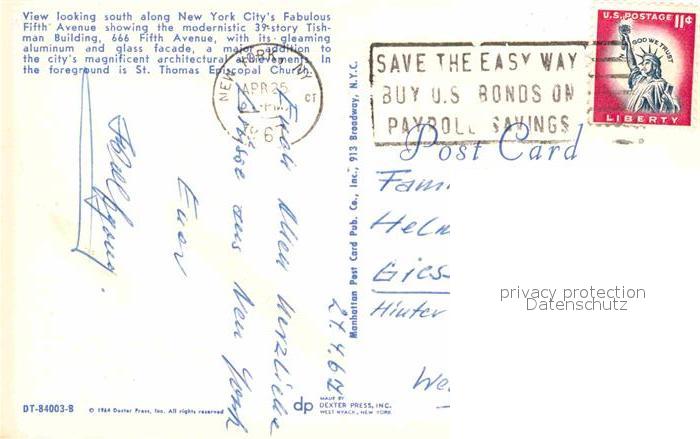 View looking south along New York City's Fabulous
Fifth Avenue showing the modernistic 39-story Tish-
man Building, 666 Fifth Avenue, with its gleaming
aluminum and glass facade, a major addition to
the city's magnificent architectural achievements. In
the foreground is St. Thomas Episcopal Church.
NEW YORK, NY
APR 25
SAVE THE EASY WAY
BUY U.S. BONDS ON
PAYROLL SAVINGS
U.S. POSTAGE 11¢
IN GOD WE TRUST
LIBERTY
Post Card
Euch Allen herzliche
Grüsse aus New York
Euer
Wolfgang.
Manhattan Post Card Pub. Co., Inc., 913 Broadway, N.Y.C.
Fam
Helm
Gies
Hinter
We
privacy protection
Datenschutz
DT-84003-B
© 1964 Dexter Press, Inc. All rights reserved
dp
MADE BY
DEXTER PRESS, INC.
WEST NYACK, NEW YORK